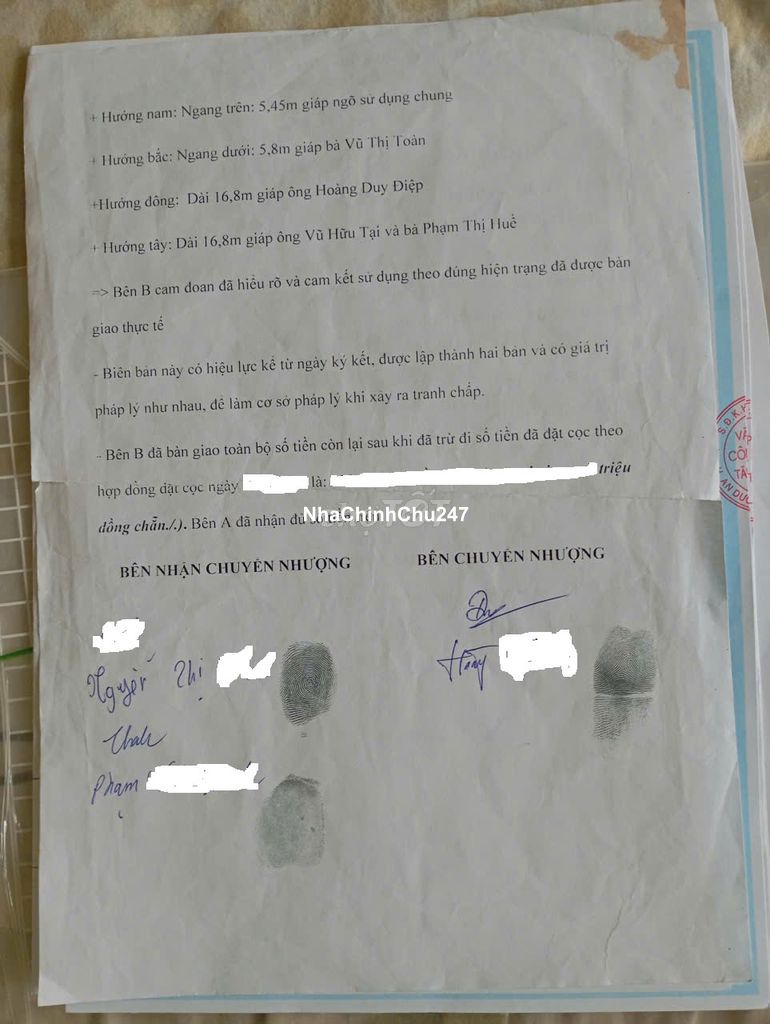 + Hướng nam: Ngang trên: 5,45m giáp ngõ sử dụng chung
+ Hướng bắc: Ngang dưới: 5,8m giáp bà Vũ Thị Toàn
+Hướng đông: Dài 16,8m giáp ông Hoàng Duy Điệp
+ Hướng tây: Dài 16,8m giáp ông Vũ Hữu Tại và bà Phạm Thị Huế
=> Bên B cam đoan đã hiểu rõ và cam kết sử dụng theo đúng hiện trạng đã được bàn
giao thực tế
- Biên bản này có hiệu lực kể từ ngày ký kết, được lập thành hai bản và có giá trị
pháp lý như nhau, để làm cơ sở pháp lý khi xảy ra tranh chấp.
- Bên B đã bàn giao toàn bộ số tiền còn lại sau khi đã trừ đi số tiền đã đặt cọc theo
hợp đồng đặt cọc ngày là: triệu
đồng chẵn./.). Bên A đã nhận đủ
NhaChinhChu247
BÊN NHẬN CHUYỂN NHƯỢNG
BÊN CHUYỂN NHƯỢNG
Nguyễn Thị
Phạm
S.Đ.K.
VĂ
CÔ
TÂ
AN DƯ